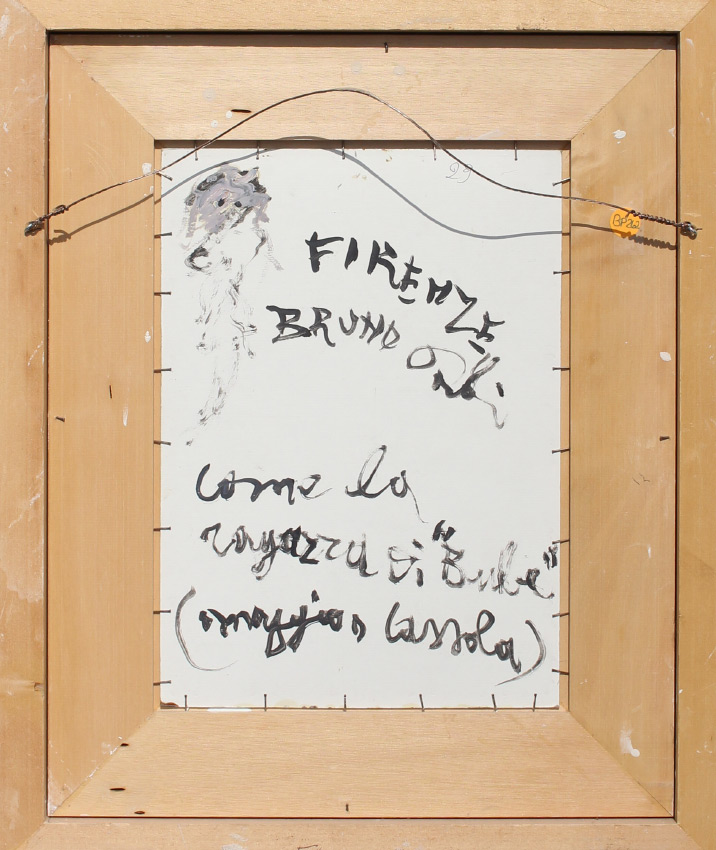 29
FIRENZE
BRUNO
come la
ragazza di "Bube"
(omaggio a Cassola)